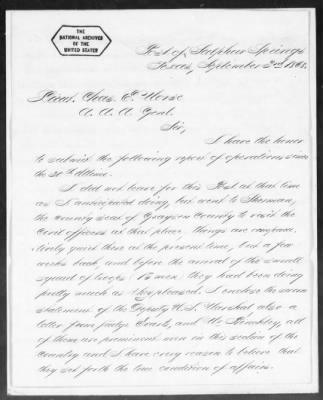 THE
NATIONAL ARCHIVES
OF THE
UNITED STATES
Post of Sulphur Springs
Texas, September 2nd 1868.
Lieut. Chas. E. Morse
A. A. A. Genl.
Sir,
I have the honor
to submit the following report of operations since
the 20th Ultimo.
I did not leave for this Post at that time
as I anticipated doing, but went to Sherman,
the County Seat of Grayson County to visit the
Civil officers at that place, things are compara-
tively quiet there at the present time, but a few
weeks back, and before the arrival of the small
squad of troops 15 men, they had been doing
pretty much as they pleased. I enclose the sworn
statement of the Deputy U.S. Marshal also a
letter from Judge and Mr. all
of them are prominent men in this section of the
Country and I have every reason to believe that
they set forth the true condition of affairs.